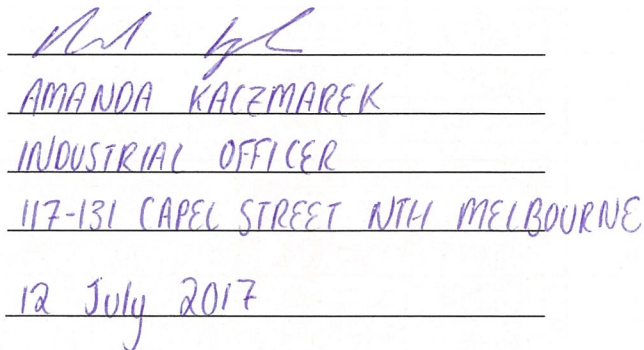 AMANDA KACZMAREK
INDUSTRIAL OFFICER
117-131 CAPEL STREET NTH MELBOURNE
12 July 2017